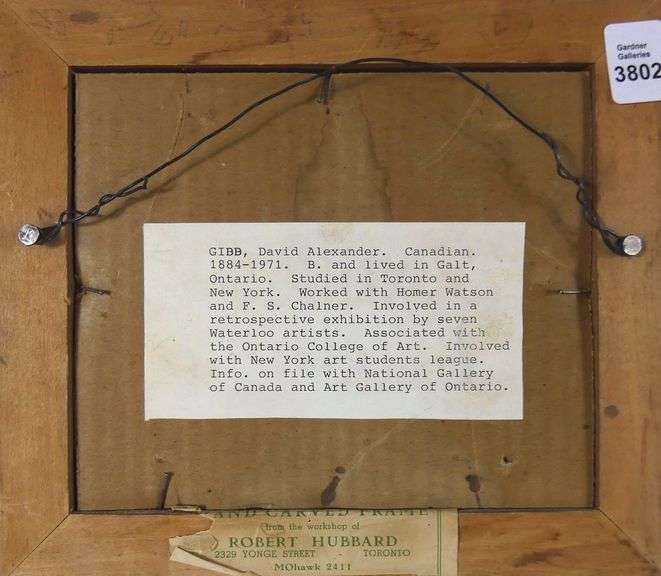 Gardner
Galleries
3802
GIBB, David Alexander. Canadian.
1884-1971. B. and lived in Galt,
Ontario. Studied in Toronto and
New York. Worked with Homer Watson
and F. S. Chalner. Involved in a
retrospective exhibition by seven
Waterloo artists. Associated with
the Ontario College of Art. Involved
with New York art students league.
Info. on file with National Gallery
of Canada and Art Gallery of Ontario.
AND CARVED FRAME
from the workshop of
ROBERT HUBBARD
2329 YONGE STREET - TORONTO
MOhawk 2411